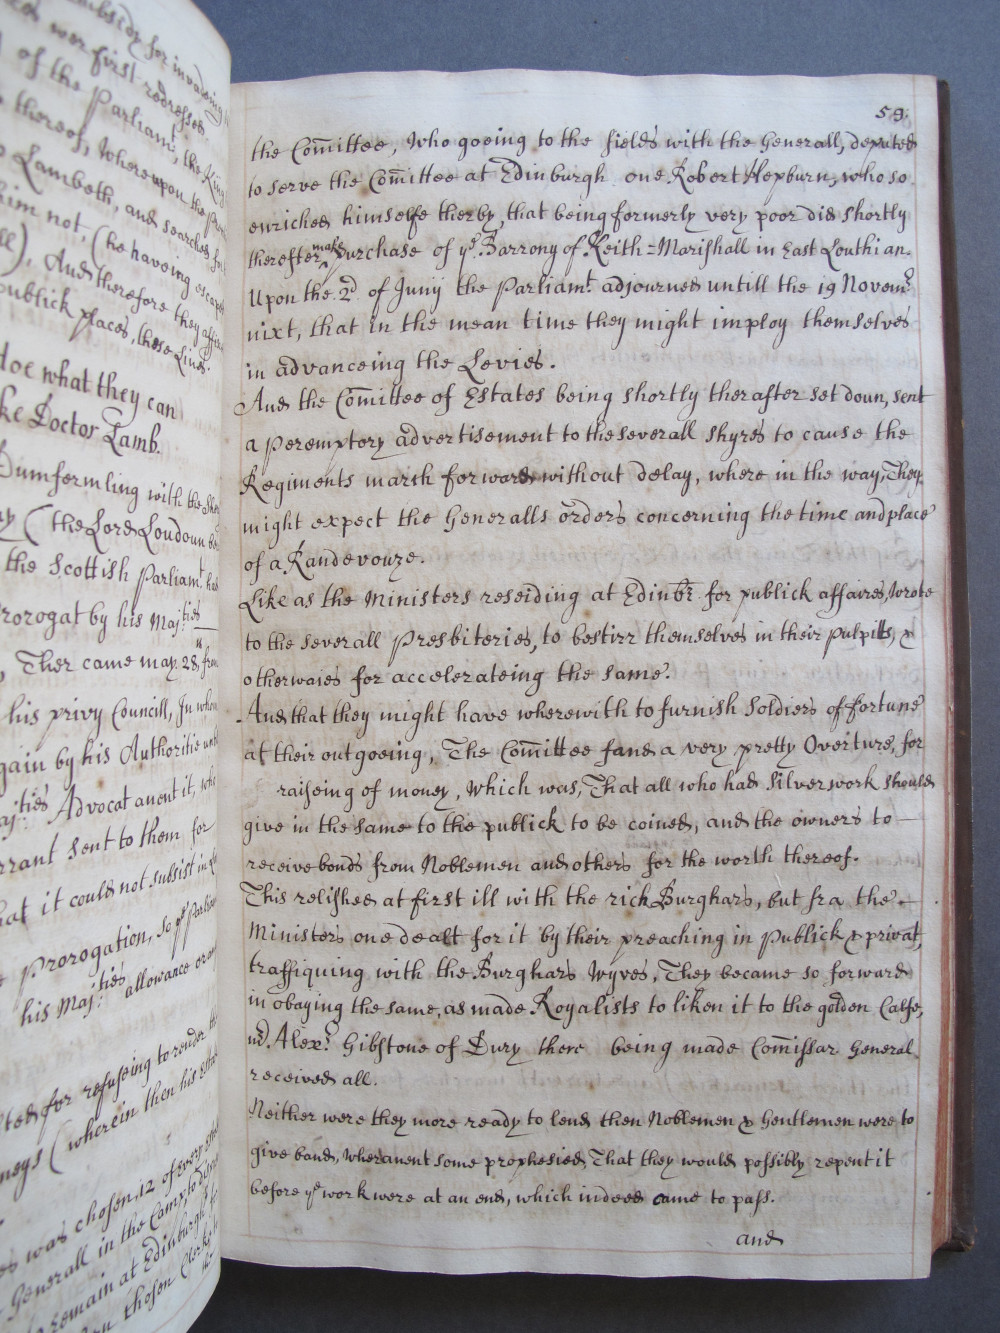 subsidy for invadeing
wer first redressed
of the Parliamt, the King
thereof, Whereupon the
Lambeth, and searched for
him not, (he haveing escaped
ll). And therefore they affixed
publick places, these Lines.
doe what they can
ke Doctor Lamb.
Dumfermling with the
ay (the Lord Loudoun
the Scottish Parliamt had
Prorogat by his Majties
Ther came may 28 from
his privy Councill, In whom
gain by his Authoritie untill
Majties Advocat anent it, who
rrant sent to them for
hat it could not subsist in
Prorogation, so yt
his Majties allowance
ted for refuseing to render
neys (wherein then his
es was chosen, 12 of Every
Generall in the Camp, to
remain at Edinburgh
chosen Clerks
59.
the Com̄ittee, Who goeing to the fields with the Generall, deputed
to serve the Com̄ittee at Edinburgh one Robert Hepburn, who so
enriched himselfe therby, that being formerly very poor did shortly
therafter make purchase of ye Barrony of Keith=Marishall in East Louthian.
Upon the 2d of Junij the Parliamt adjourned untill the 19 Novemr
nixt, that in the mean time they might imploy themselves
in advanceing the Levies.
And the Com̄ittee of Estates being shortly therafter set doun, sent
a peremptory advertisement to the severall shyres to cause the
Regiments march forward without delay, where in the way, They
might expect the Generalls orders concerning the time and place
of a Randevouze.
Like as the Ministers reseiding at Edinbr for publick affaires, wrote
to the severall Presbiteries, to bestirr themselves in their pulpitts, &
otherwaies for accelerateing the same.
And that they might have wherewith to furnish Soldiers of fortune
at their outgoeing, The Com̄ittee fand a very pretty Overture, for
raiseing of money, Which was, That all who had Silverwork should
give in the same to the publick to be coined, and the owners to
receive bonds from Noblemen and others for the worth thereof.
This relished at first ill with the rich Burghars, but fra the
Ministers one dealt for it by their preaching in Publick & privat,
traffiquing with the Burghars Wyves, They became so forward
in obaying the same, as made Royalists to liken it to the golden Calfe,
md Alexr Gibstone of Dury there being made Com̄issar General
received all.
Neither were they more ready to lend then Noblemen & Gentlemen were to
give band, wheranent some prophesied, That they would possibly repent it
before ye work were at an end, which indeed came to pass.
and